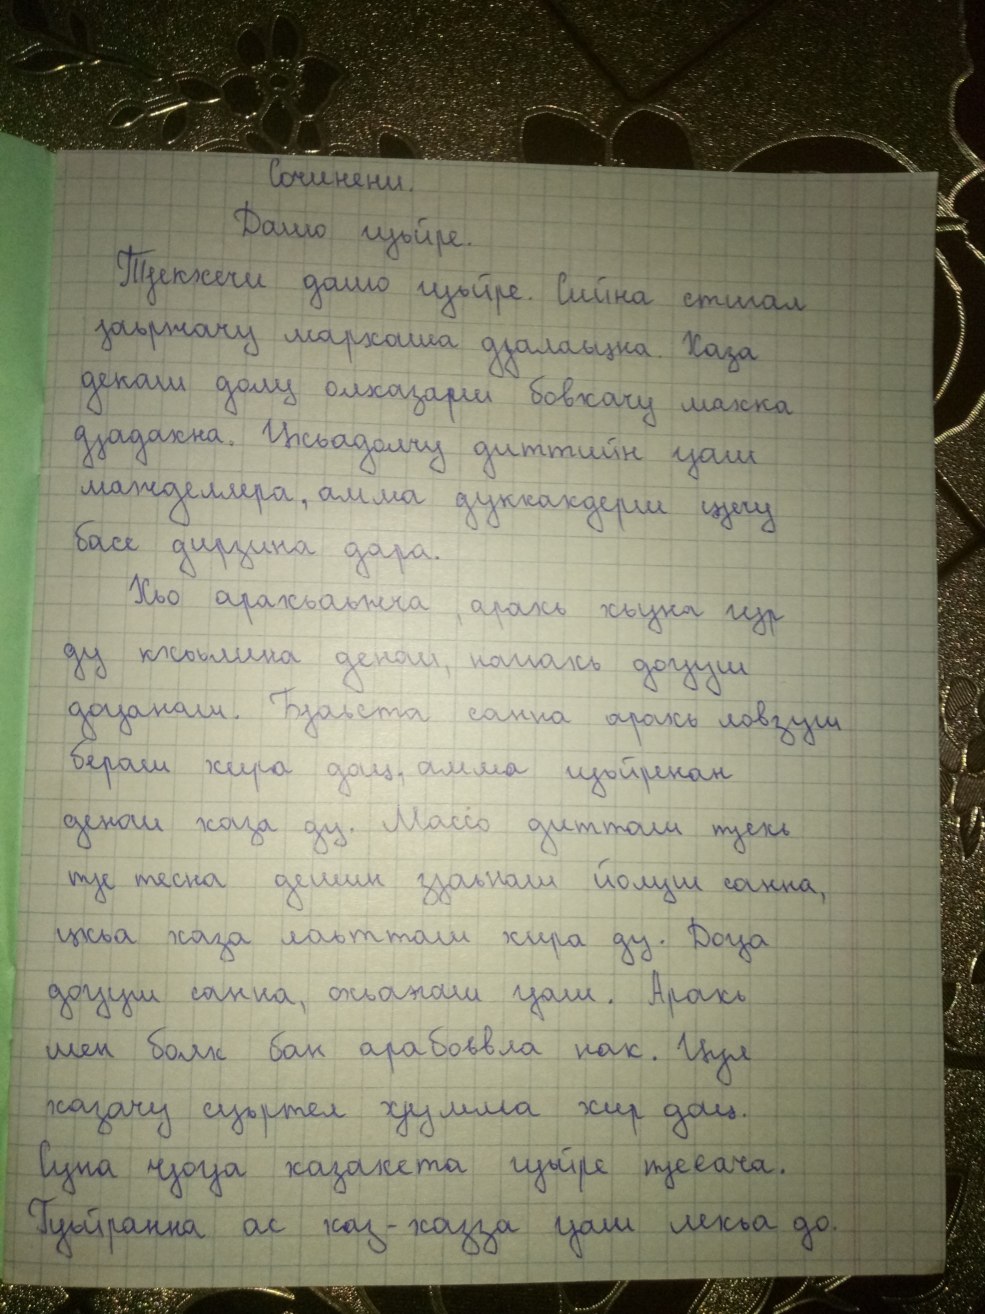 Сочинени.
Дашо гуьйре.
ТӀекхечи дашо гуьйре. Сийна стигал
Ӏаьржачу мархаша дӀалаьцна. Хаза
декаш долу олхазарш бовхачу махка
дӀадахна. Цхьадолчу диттийн гӀаш
мажделлера, амма дуккхахдерш цӀечу
басе дирзина дара.
Хьо арахьаьжча, арахь хьуна гур
ду кхоьлина денош, наггахь догӀуш
догӀанаш. БӀаьста санна арахь ловзуш
бераш хира дац, амма гуьйренан
денош хаза ду. Массо дитташ тӀехь
тӀе тесна дешин зӀаьнаш йолуш санна,
цкъа хаза лаьтташ хира ду. ДогӀа
догӀуш санна, охьаэгаш гӀаш. Арахь
шен болх бан арабовьла нах. Цул
хазачу суьртел хӀумма хир дац.
Суна чӀогӀа хазахета гуьйре тӀеяча.
Гуьйранна ас хаз-хазза гӀаш лехьа до.